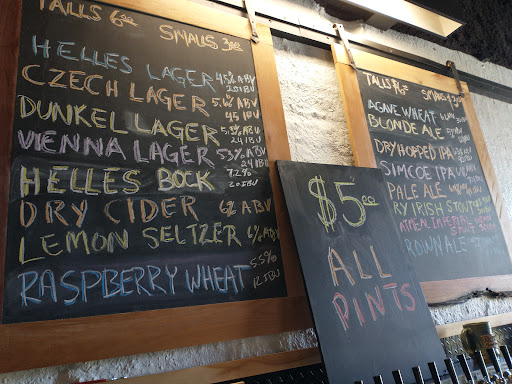 TALLS 6.00 SMALLS 3.00
HELLES LAGER 4.5% ABV
20 IBU
CZECH LAGER 5.6% ABV
45 IBU
DUNKEL LAGER 5.3% ABV
24 IBU
VIENNA LAGER 5.3% ABV
24 IBU
HELLES BOCK 7.2%
20 IBU
DRY CIDER 6% ABV
LEMON SELTZER 6% ABV
RASPBERRY WHEAT 5.5%
12 IBU
$5.00
ALL
PINTS
TALLS $6.00 SMALLS
AGAVE WHEAT
BLONDE ALE
DRY HOPPED IPA
SIMCOE IPA
PALE ALE
RY IRISH STOUT
IMPERIAL
STOUT
ROWN ALE